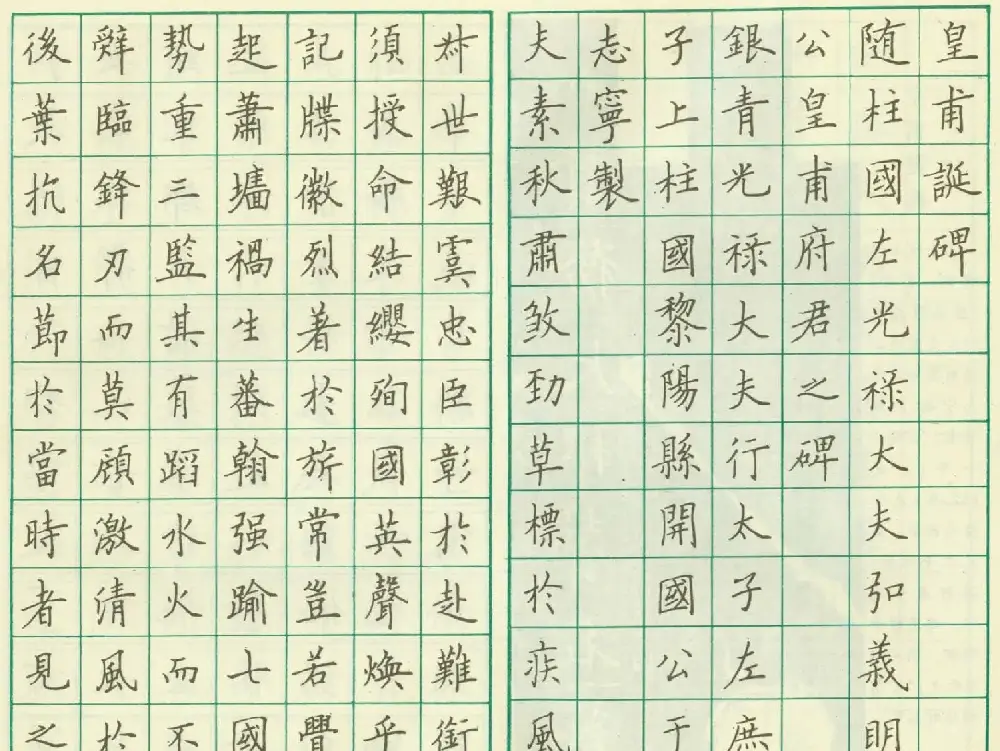 皇甫誕碑
随柱國左光禄大夫弘義明
公皇甫府君之碑
銀青光禄大夫行太子左庶
子上柱國黎陽縣開國公于
志寧製
夫素秋肅煞勁草標於疾風
叔世艱虞忠臣彰於赴難銜
須授命結纓殉國英聲煥乎
記牒徽烈著於旂常豈若舋
起蕭墻禍生蕃翰强踰七國
勢重三監其有蹈水火而不
辭臨鋒刃而莫顧激清風於
後葉抗名節於當時者見之